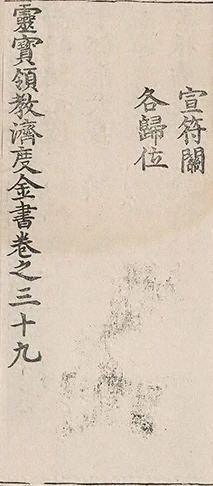 宣符關
各歸位
靈寶領教濟度金書卷之三十九